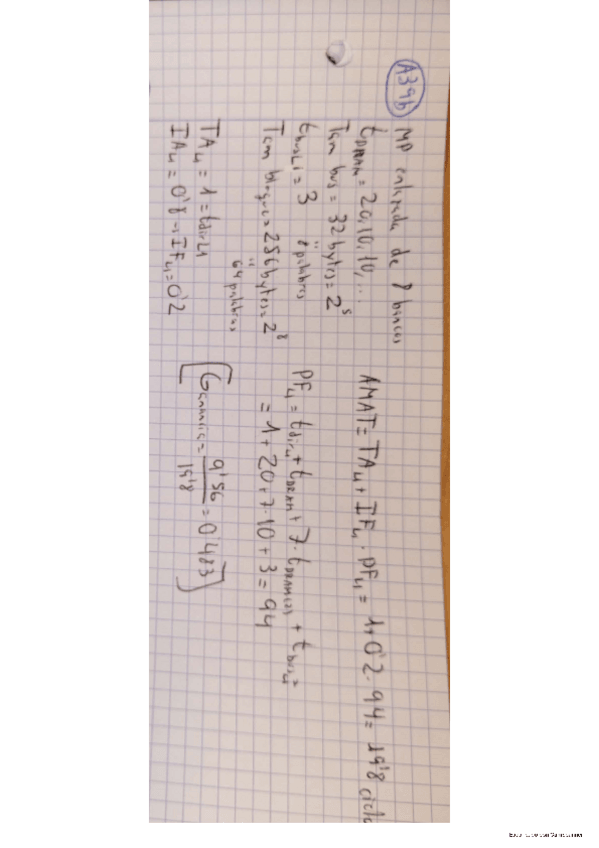 A39b
MP entrelazada de 8 bancos
tDRAM = 20, 10, 10, ...
Tam bus = 32 bytes = 2^5
8 palabras
tbusL1 = 3
Tam bloque = 256 bytes = 2^8
64 palabras
TAu = 1 = tdirL1
IAu = 0'8 → IFu = 0'2
AMAT = TAu + IFu · PFu = 1 + 0'2 · 94 = 19'8 ciclo
PFu = tdiru + tDRAM + 7 · tDRAM(2) + tbusu =
= 1 + 20 + 7 · 10 + 3 = 94
[Ganancia = 9'56 / 19'8 = 0'483]